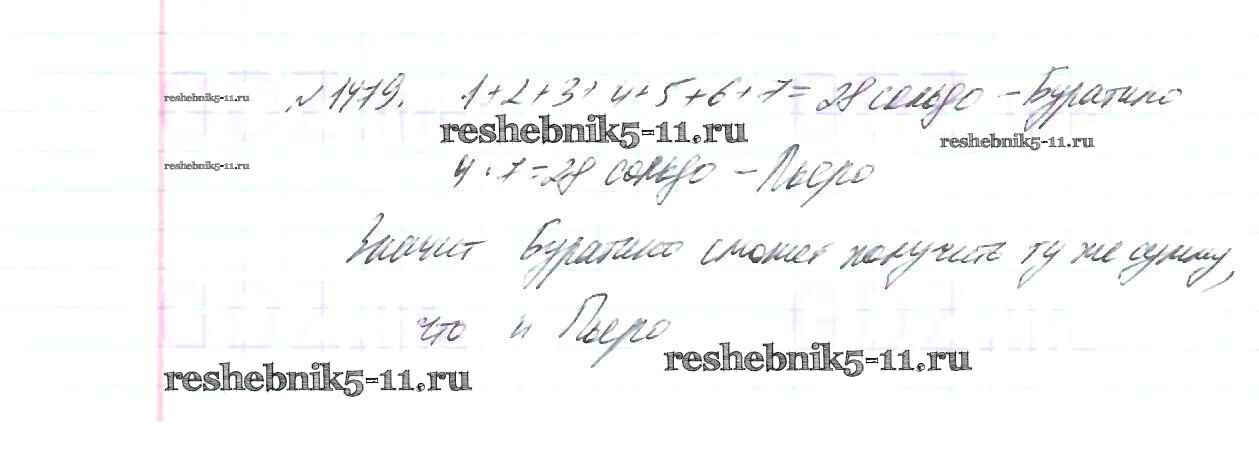 reshebnik5-11.ru
№1479. 1+2+3+4+5+6+7=28 сольдо - Буратино
reshebnik5-11.ru
reshebnik5-11.ru
reshebnik5-11.ru
4·7=28 сольдо - Пьеро
Значит Буратино сможет получить ту же сумму,
что и Пьеро
reshebnik5-11.ru
reshebnik5-11.ru